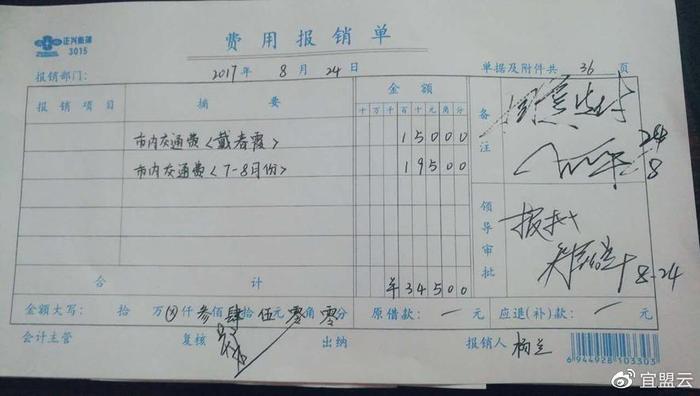 正兴票簿
3015
费用报销单
报销部门: 2017年 8月 24日 单据及附件共 36 页
报销项目 摘要 金额 备注
十万千百十元角分
市内交通费<戴春霞> 15000
市内交通费<7-8月份> 19500
24/8
领导审批
8-24
合计 ¥34500
金额大写: 拾 万 仟 叁佰肆拾伍元零角零分 原借款: 一 元 应退(补)款: 一 元
会计主管 复核 出纳 报销人 杨兰
6944928103303
@宜盟云